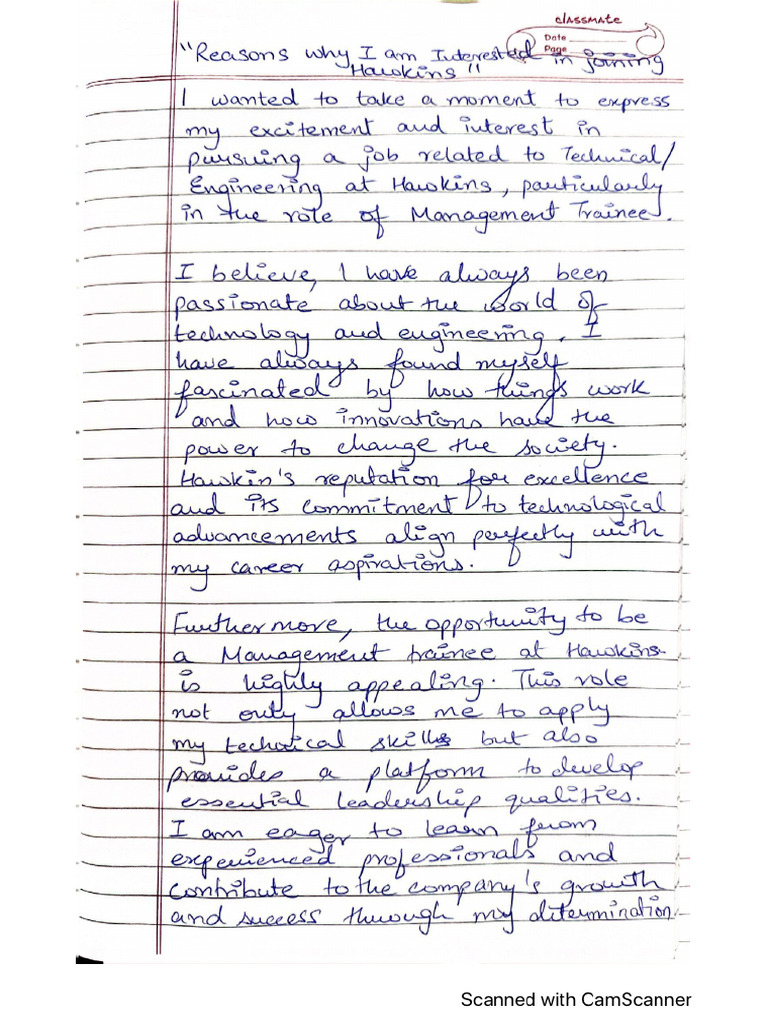 classmate
Date
Page
"Reasons why I am Interested in joining
Hawkins"
I wanted to take a moment to express
my excitement and interest in
pursuing a job related to Technical/
Engineering at Hawkins, particularly
in the role of Management Trainee.
I believe, I have always been
passionate about the world of
technology and engineering. I
have always found myself
fascinated by how things work
and how innovations have the
power to change the society.
Hawkin's reputation for excellence
and its commitment to technological
advancements align perfectly with
my career aspirations.
Furthermore, the opportunity to be
a Management trainee at Hawkins
is highly appealing. This role
not only allows me to apply
my technical skills but also
provides a platform to develop
essential leadership qualities.
I am eager to learn from
experienced professionals and
contribute to the company's growth
and success through my determination
Scanned with CamScanner